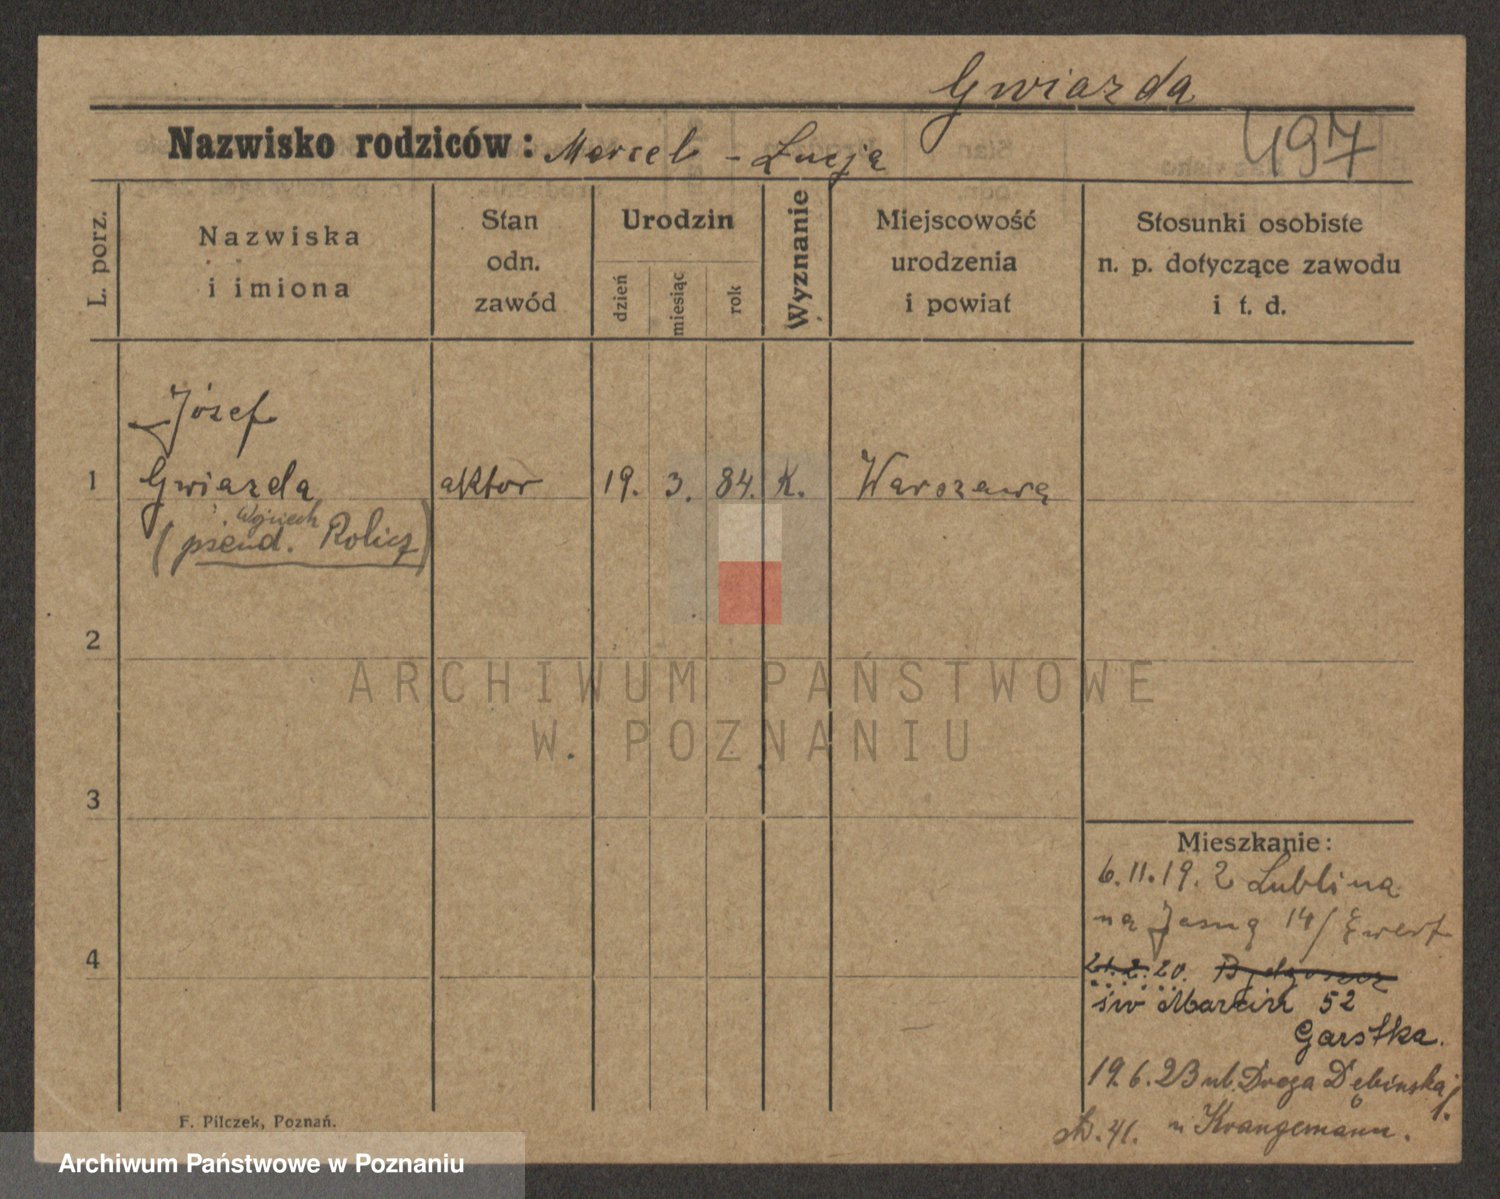 Gwiazda
Nazwisko rodziców: Marcel - Łucja
497
L. porz.
Nazwiska
i imiona
Stan
odn.
zawód
Urodzin
dzień
miesiąc
rok
Wyznanie
Miejscowość
urodzenia
i powiat
Stosunki osobiste
n. p. dotyczące zawodu
i t. d.
Józef
1 Gwiazda aktor 19. 3. 84. K. Warszawa
Wojciech
(pseud. Rolicz)
2
3
4
ARCHIWUM PAŃSTWOWE
W. POZNANIU
Mieszkanie:
6.11.19. z Lublina
na Jasną 14/
21.2.20. Bydgoszcz
św Marcin 52
Garstka.
19.6.23 ul. Droga Dębińska
41. u Krangemann.
F. Pilczek, Poznań.
Archiwum Państwowe w Poznaniu